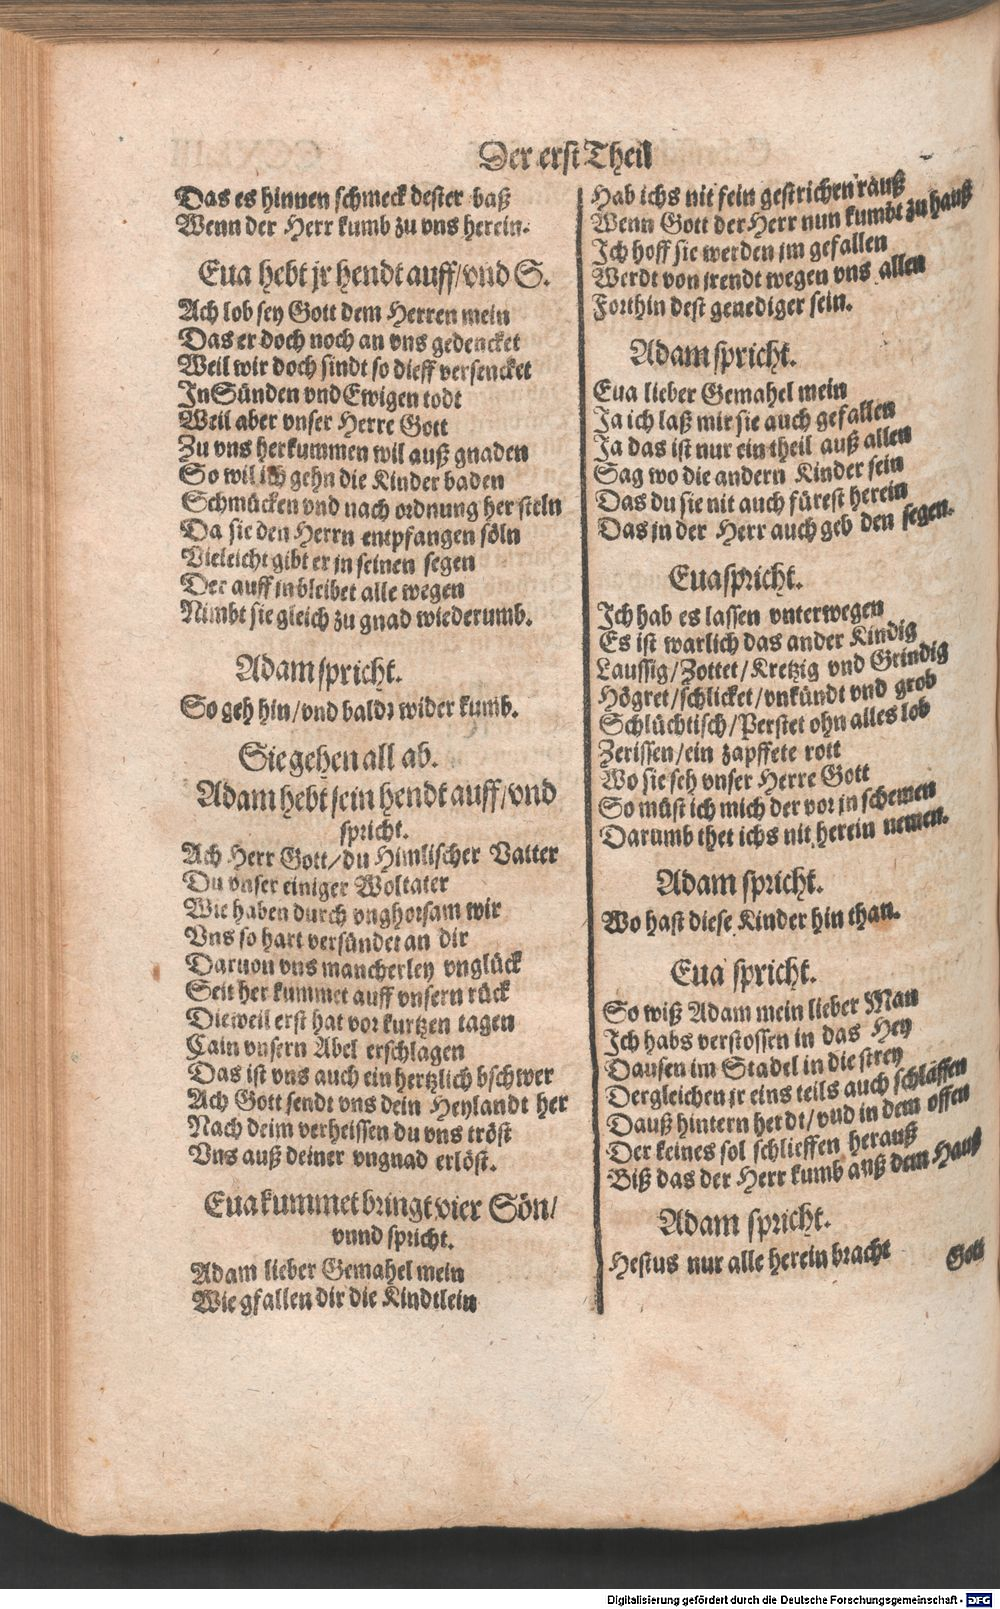 Der erst Theil
Das es hinnen schmeck dester baß
Wenn der Herr kumb zu vns herein.
Eua hebt jr hendt auff/vnd S.
Ach lob sey Gott dem Herren mein
Das er doch noch an vns gedencket
Weil wir doch sindt so dieff versencket
In Sünden vnd Ewigen todt
Weil aber vnser Herre Gott
Zu vns herkummen wil auß gnaden
So wil ich gehn die Kinder baden
Schmücken vnd nach ordnung her steln
Da sie den Herrn entpfangen söln
Vieleicht gibt er jn seinen segen
Der auff in bleibet alle wegen
Nimbt sie gleich zu gnad wiederumb.
Adam spricht.
So geh hin/vnd baldt wider kumb.
Sie gehen all ab.
Adam hebt sein hendt auff/vnd
spricht.
Ach Herr Gott/du Himlischer Vatter
Du vnser einiger Woltater
Wie haben durch vnghorsam wir
Vns so hart versündet an dir
Daruon vns mancherley vnglück
Seit her kummet auff vnsern rück
Dieweil erst hat vor kurtzen tagen
Cain vnsern Abel erschlagen
Das ist vns auch ein hertzlich bschwer
Ach Gott sendt vns dein Heylandt her
Nach deim verheissen du vns tröst
Vns auß deiner vngnad erlöst.
Eua kummet bringt vier Sön/
vnnd spricht.
Adam lieber Gemahel mein
Wie gfallen dir die Kindtlein
Hab ichs nit fein gestrichen rauß
Wenn Gott der Herr nun kumbt zu hauß
Ich hoff sie werden jm gefallen
Werdt von jrendt wegen vns allen
Forthin dest genediger sein.
Adam spricht.
Eua lieber Gemahel mein
Ja ich laß mir sie auch gefallen
Ja das ist nur ein theil auß allen
Sag wo die andern Kinder sein
Das du sie nit auch fürest herein
Das jn der Herr auch geb den segen.
Eua spricht.
Ich hab es lassen vnterwegen
Es ist warlich das ander Kindig
Laussig/Zottet/Kretzig vnd Grindig
Högret/schlicket/vnkündt vnd grob
Schlüchtisch/Perstet ohn alles lob
Zerissen/ein zapffete rott
Wo sie seh vnser Herre Gott
So müst ich mich der vor jn schemen
Darumb thet ichs nit herein nemen.
Adam spricht.
Wo hast diese Kinder hin than.
Eua spricht.
So wiß Adam mein lieber Man
Ich habs verstossen in das Hey
Dausen im Stadel in die strey
Dergleichen jr eins teils auch schlaffen
Dauß hintern herdt/vnd in dem offen
Der keines sol schlieffen herauß
Biß das der Herr kumb auß dem Hauß
Adam spricht.
Hestus nur alle herein bracht
Gott
Digitalisierung gefördert durch die Deutsche Forschungsgemeinschaft - DFG